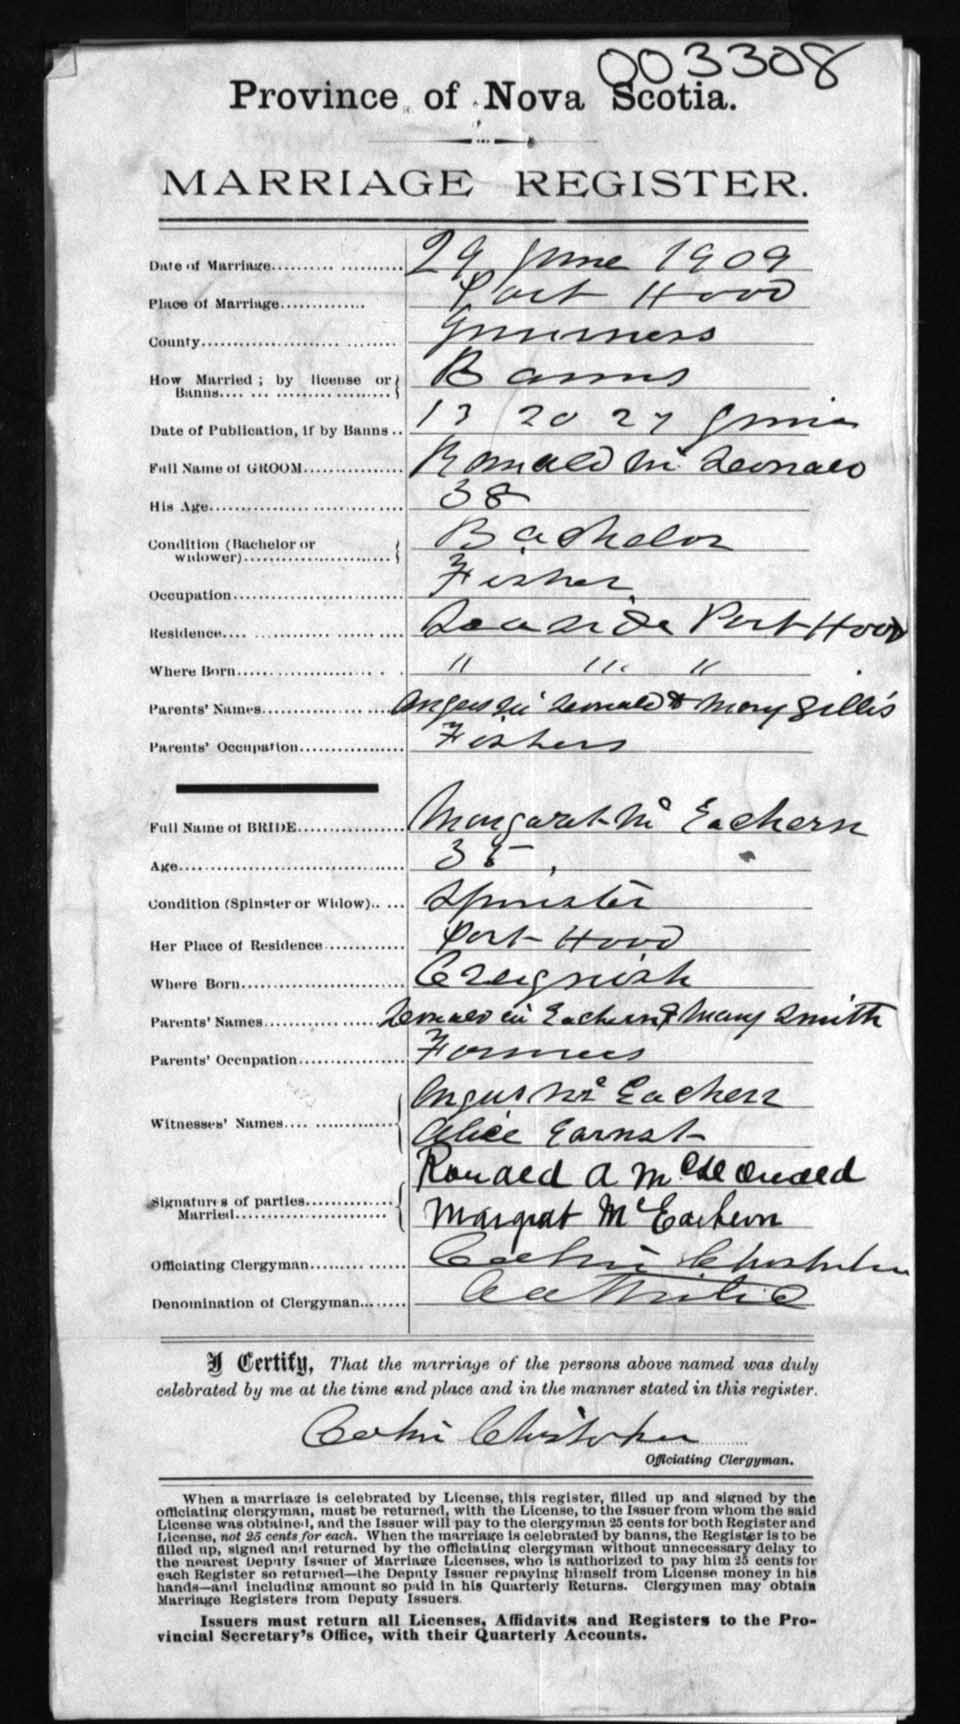 003308
Province of Nova Scotia.
MARRIAGE REGISTER.
Date of Marriage.......... 29 June 1909
Place of Marriage............. Port Hood
County.......... Inverness
How Married; by license or Banns.......... Banns
Date of Publication, if by Banns.. 13 20 27 June
Full Name of GROOM.......... Ronald Mc Donald
His Age.......... 38
Condition (Bachelor or widower).......... Bachelor
Occupation.......... Fisher
Residence.......... Seaside Port Hood
Where Born.......... " "' "
Parents' Names.......... Angus Mc Donald & Mary Gillis
Parents' Occupation.......... Fishers
Full Name of BRIDE.......... Margaret Mc Eachern
Age.......... 35
Condition (Spinster or Widow).. ... Spinster
Her Place of Residence.......... Port Hood
Where Born.......... Creignish
Parents' Names.......... Donald Mc Eachern & Mary Smith
Parents' Occupation.......... Farmers
Witnesses' Names.......... Angus Mc Eachern
Alice Earnst
Signatures of parties Married.......... Ronald A McDonald
Margret McEachern
Officiating Clergyman.......... Colin Chisholm
Denomination of Clergyman.......... Catholic
I Certify, That the marriage of the persons above named was duly
celebrated by me at the time and place and in the manner stated in this register.
Colin Chisholm
Officiating Clergyman.
When a marriage is celebrated by License, this register, filled up and signed by the
officiating clergyman, must be returned, with the License, to the Issuer from whom the said
License was obtained, and the Issuer will pay to the clergyman 25 cents for both Register and
License, not 25 cents for each. When the marriage is celebrated by banns, the Register is to be
filled up, signed and returned by the officiating clergyman without unnecessary delay to
the nearest Deputy Issuer of Marriage Licenses, who is authorized to pay him 25 cents for
each Register so returned—the Deputy Issuer repaying himself from License money in his
hands—and including amount so paid in his Quarterly Returns. Clergymen may obtain
Marriage Registers from Deputy Issuers.
Issuers must return all Licenses, Affidavits and Registers to the Pro-
vincial Secretary's Office, with their Quarterly Accounts.